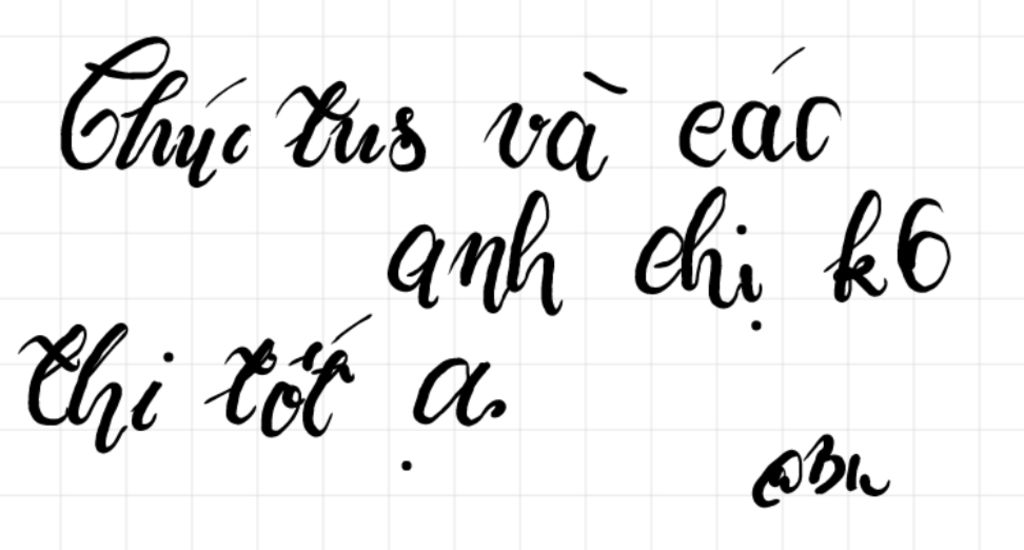 Chúc tus và các
anh chị k6
thi tốt ạ.